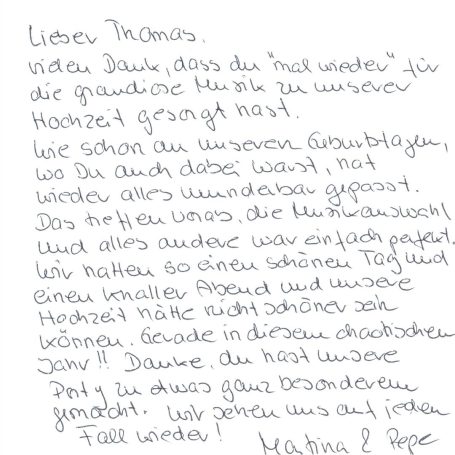 Lieber Thomas,
vielen Dank, dass du "mal wieder" für
die grandiose Musik zu unserer
Hochzeit gesorgt hast.
Wie schon an unseren Geburtstagen,
wo Du auch dabei warst, hat
wieder alles wunderbar gepasst.
Das treffen vorab, die Musikauswahl
und alles andere war einfach perfekt.
Wir hatten so einen schönen Tag und
einen knaller Abend und unsere
Hochzeit hätte nicht schöner sein
können. Gerade in diesem chaotischen
Jahr!! Danke, du hast unsere
Party zu etwas ganz besonderem
gemacht. Wir sehen uns auf jeden
Fall wieder!
Martina & Pepe